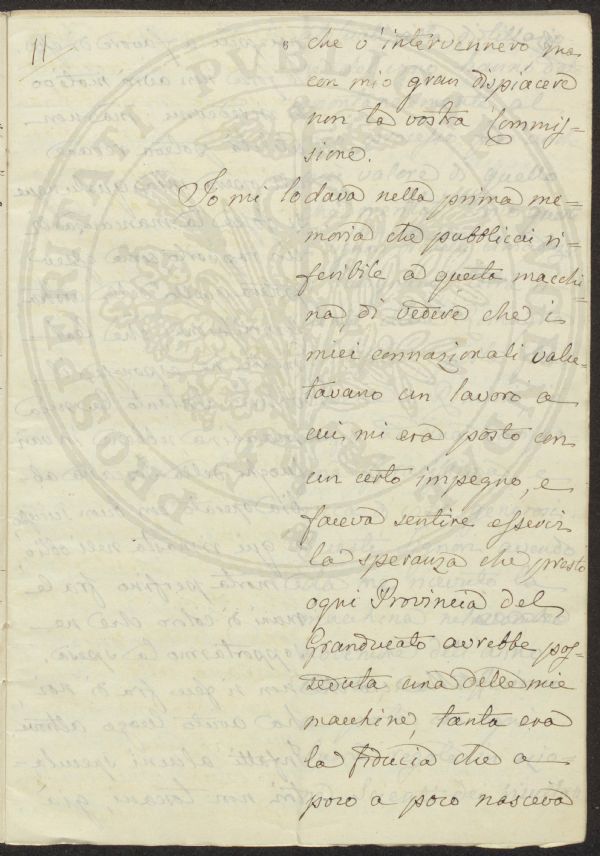 11
che v'intervennero ma
con mio gran dispiacere
non la vostra Commis=
sione.
Io mi lodava nella prima me=
moria che pubblicai ri=
feribile a questa macchi=
na, di vedere che i
miei connazionali valu=
tavano un lavoro a
cui mi era posto con
un certo impegno, e
faceva sentire esservi
la speranza che presto
ogni Provincia del
Granducato avrebbe pos=
seduta una delle mie
macchine, tanta era
la fiducia che a
poco a poco nasceva